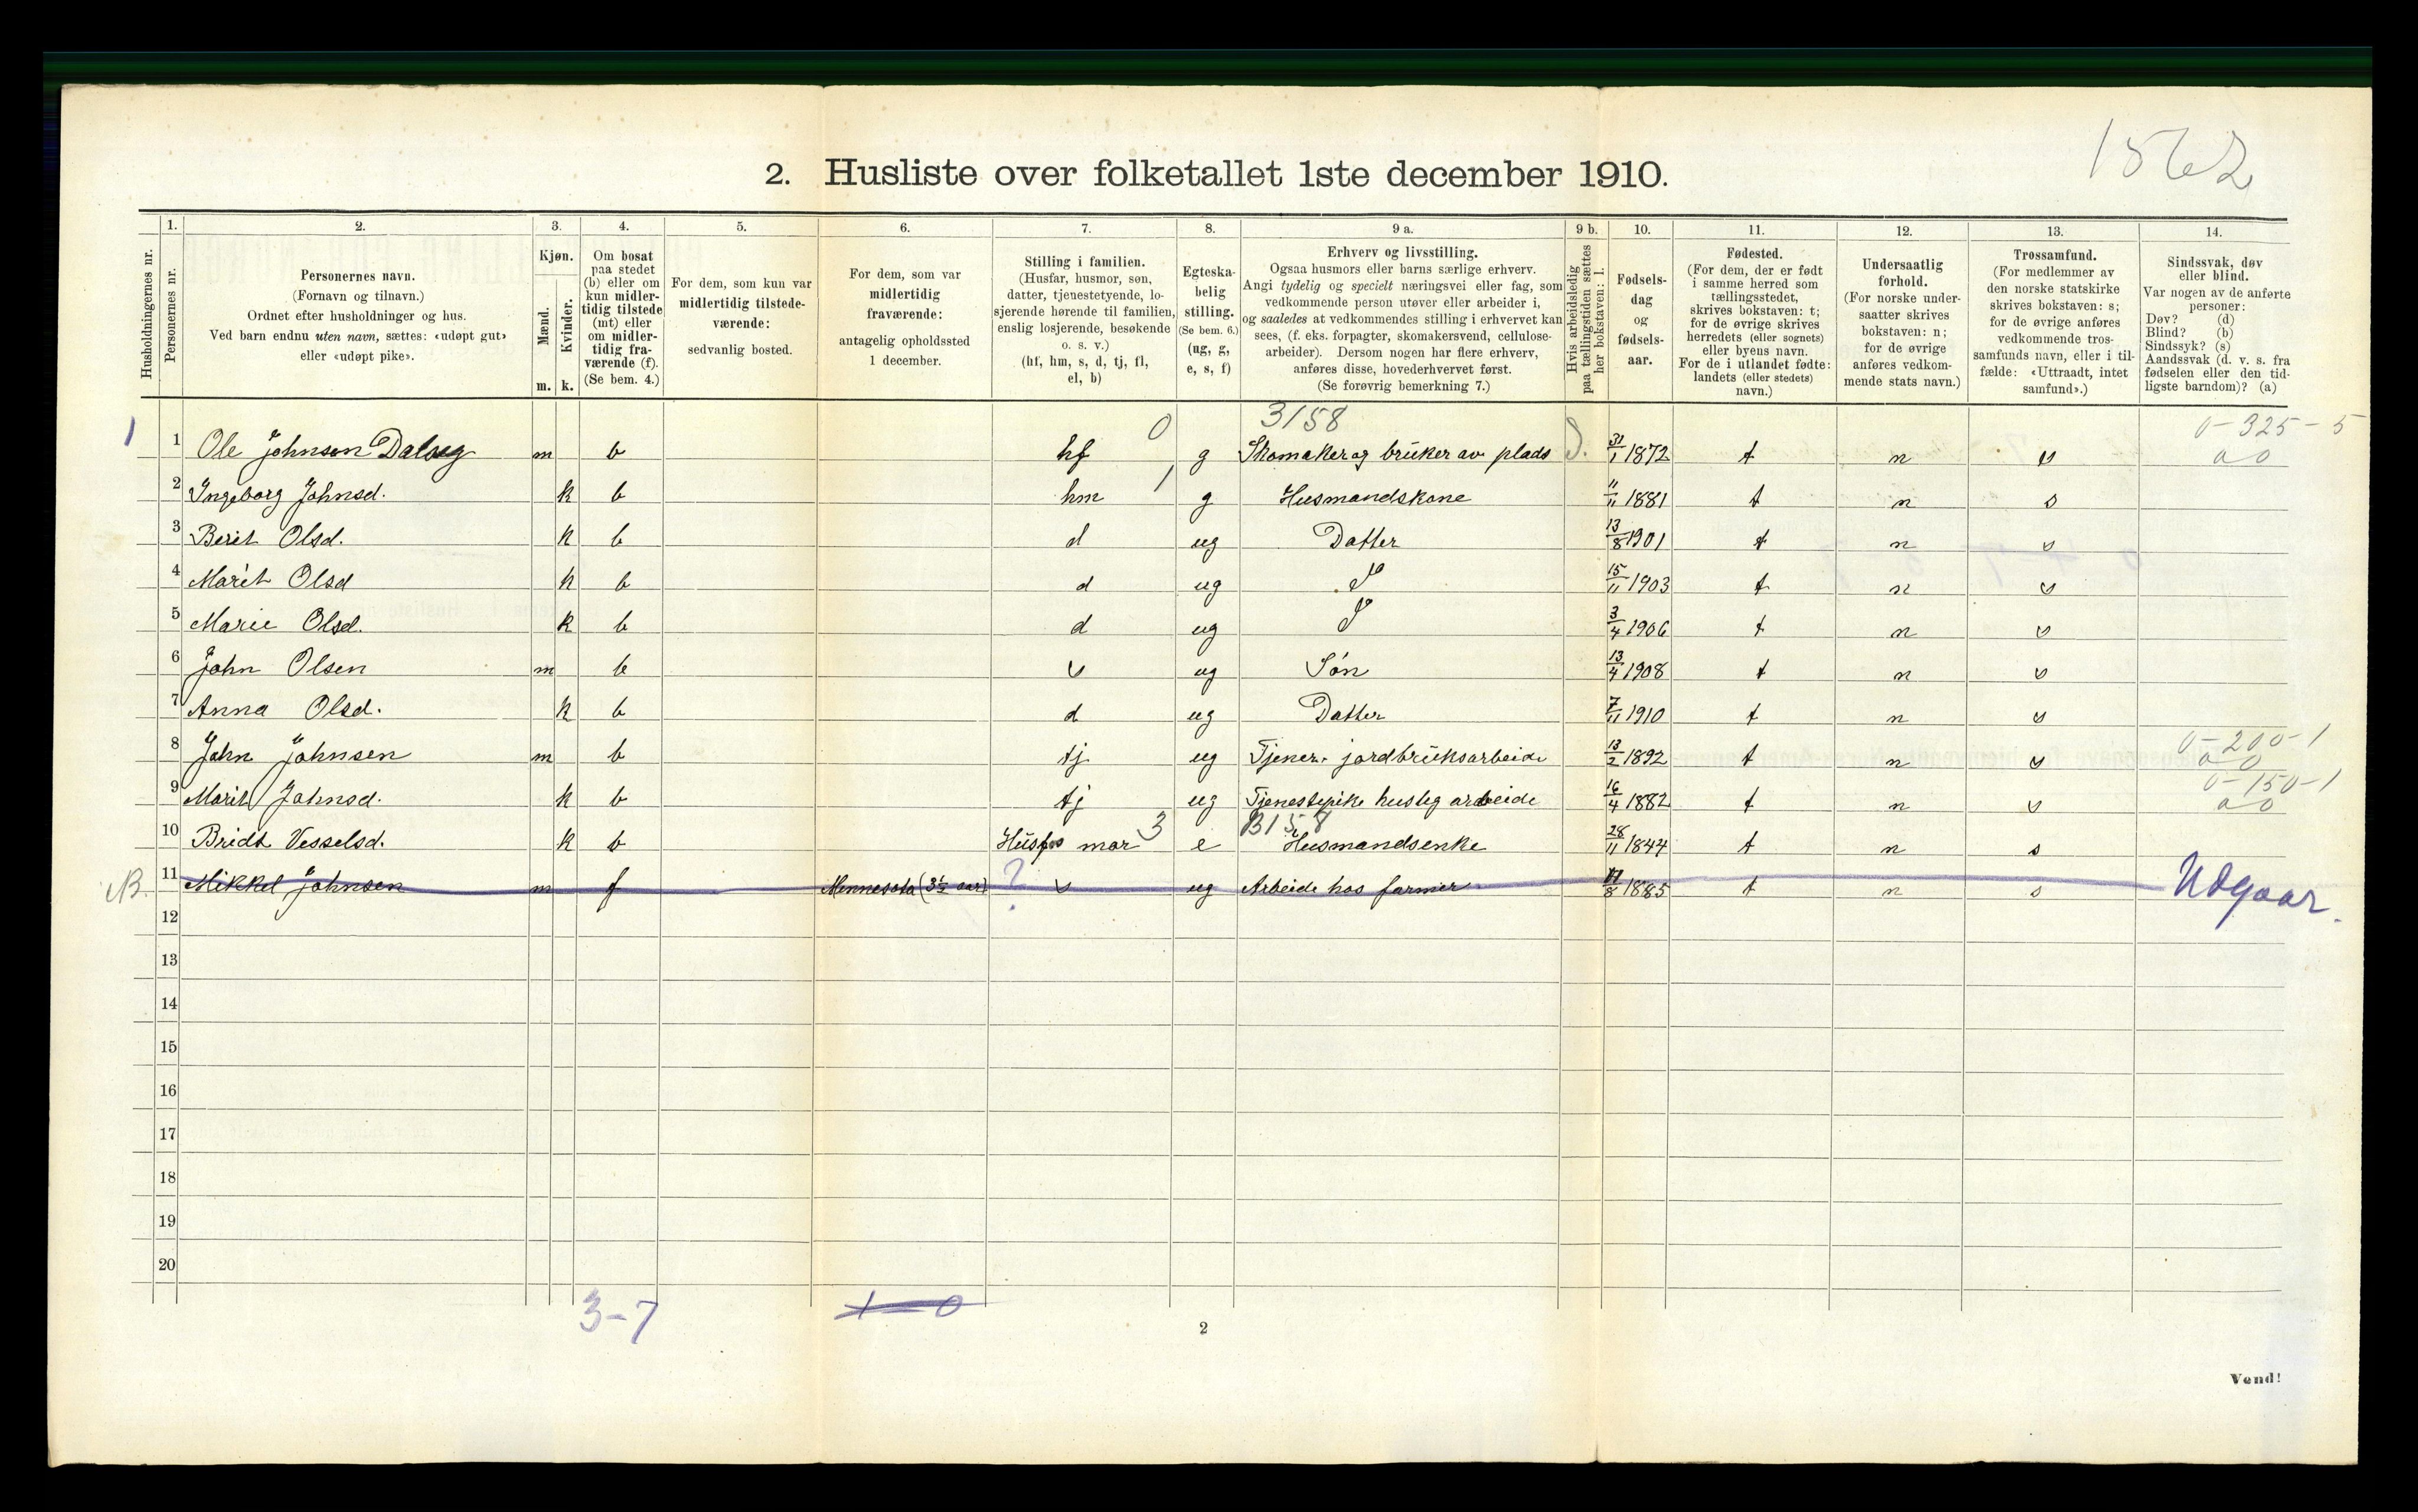 1562
2. Husliste over folketallet 1ste december 1910.
Husholdningernes nr.
1. Personernes nr.
2. Personernes navn. (Fornavn og tilnavn.) Ordnet efter husholdninger og hus. Ved barn endnu uten navn, sættes: «udøpt gut» eller «udøpt pike».
3. Kjøn. Mænd. m. Kvinder. k.
4. Om bosat paa stedet (b) eller om kun midlertidig tilstede (mt) eller om midlertidig fraværende (f). (Se bem. 4.)
5. For dem, som kun var midlertidig tilstedeværende: sedvanlig bosted.
6. For dem, som var midlertidig fraværende: antagelig opholdssted 1 december.
7. Stilling i familien. (Husfar, husmor, søn, datter, tjenestetyende, losjerende hørende til familien, enslig losjerende, besøkende o. s. v.) (hf, hm, s, d, tj, fl, el, b)
8. Egteskabelig stilling. (Se bem. 6.) (ug, g, e, s, f)
9 a. Erhverv og livsstilling. Ogsaa husmors eller barns særlige erhverv. Angi tydelig og specielt næringsvei eller fag, som vedkommende person utøver eller arbeider i, og saaledes at vedkommendes stilling i erhvervet kan sees, (f. eks. forpagter, skomakersvend, cellulosearbeider). Dersom nogen har flere erhverv, anføres disse, hovederhvervet først. (Se forøvrig bemerkning 7.)
9 b. Hvis arbeidsledig paa tællingstiden sættes her bokstaven: l.
10. Fødselsdag og fødselsaar.
11. Fødested. (For dem, der er født i samme herred som tællingsstedet, skrives bokstaven: t; for de øvrige skrives herredets (eller sognets) eller byens navn. For de i utlandet fødte: landets (eller stedets) navn.)
12. Undersaatlig forhold. (For norske undersaatter skrives bokstaven: n; for de øvrige anføres vedkommende stats navn.)
13. Trossamfund. (For medlemmer av den norske statskirke skrives bokstaven: s; for de øvrige anføres vedkommende trossamfunds navn, eller i tilfælde: «Uttraadt, intet samfund».)
14. Sindssvak, døv eller blind. Var nogen av de anførte personer: Døv? (d) Blind? (b) Sindssyk? (s) Aandssvak (d. v. s. fra fødselen eller den tidligste barndom)? (a)
3158 0-325-5
1 1 Ole Johnsen Dalseg m b hf 0 g Skomaker og bruker av plads 31/1 1872 t n s a0
2 Ingeborg Johnsd. k b hm 1 g Husmandskone 11/11 1881 t n s
3 Berit Olsd. k b d ug Datter 13/8 1901 t n s
4 Marit Olsd k b d ug 15/11 1903 t n s
5 Marie Olsd. k b d ug 3/4 1906 t n s
6 John Olsen m b s ug Søn 13/4 1908 t n s
7 Anna Olsd. k b d ug Datter 7/11 1910 t n s
8 John Johnsen m b tj ug Tjener. jordbruksarbeide 13/2 1892 t n s 0-200-1 a0
9 Marit Johnsd. k b tj ug Tjenestepike husleg arbeide 16/4 1882 t n s 0-150-1 a0
10 Bridt Vesselsd. k b Husfos mor 3 e B158 Husmandsenke 28/11 1844 t n s
NB. 11 Mikkel Johnsen m f Mennesota (3 1/2 aar) ? s ug Arbeide hos farmer 1885 t n s Udgaar.
12
13
14
15
16
17
18
19
20
3-7 1-0
2
Vend!